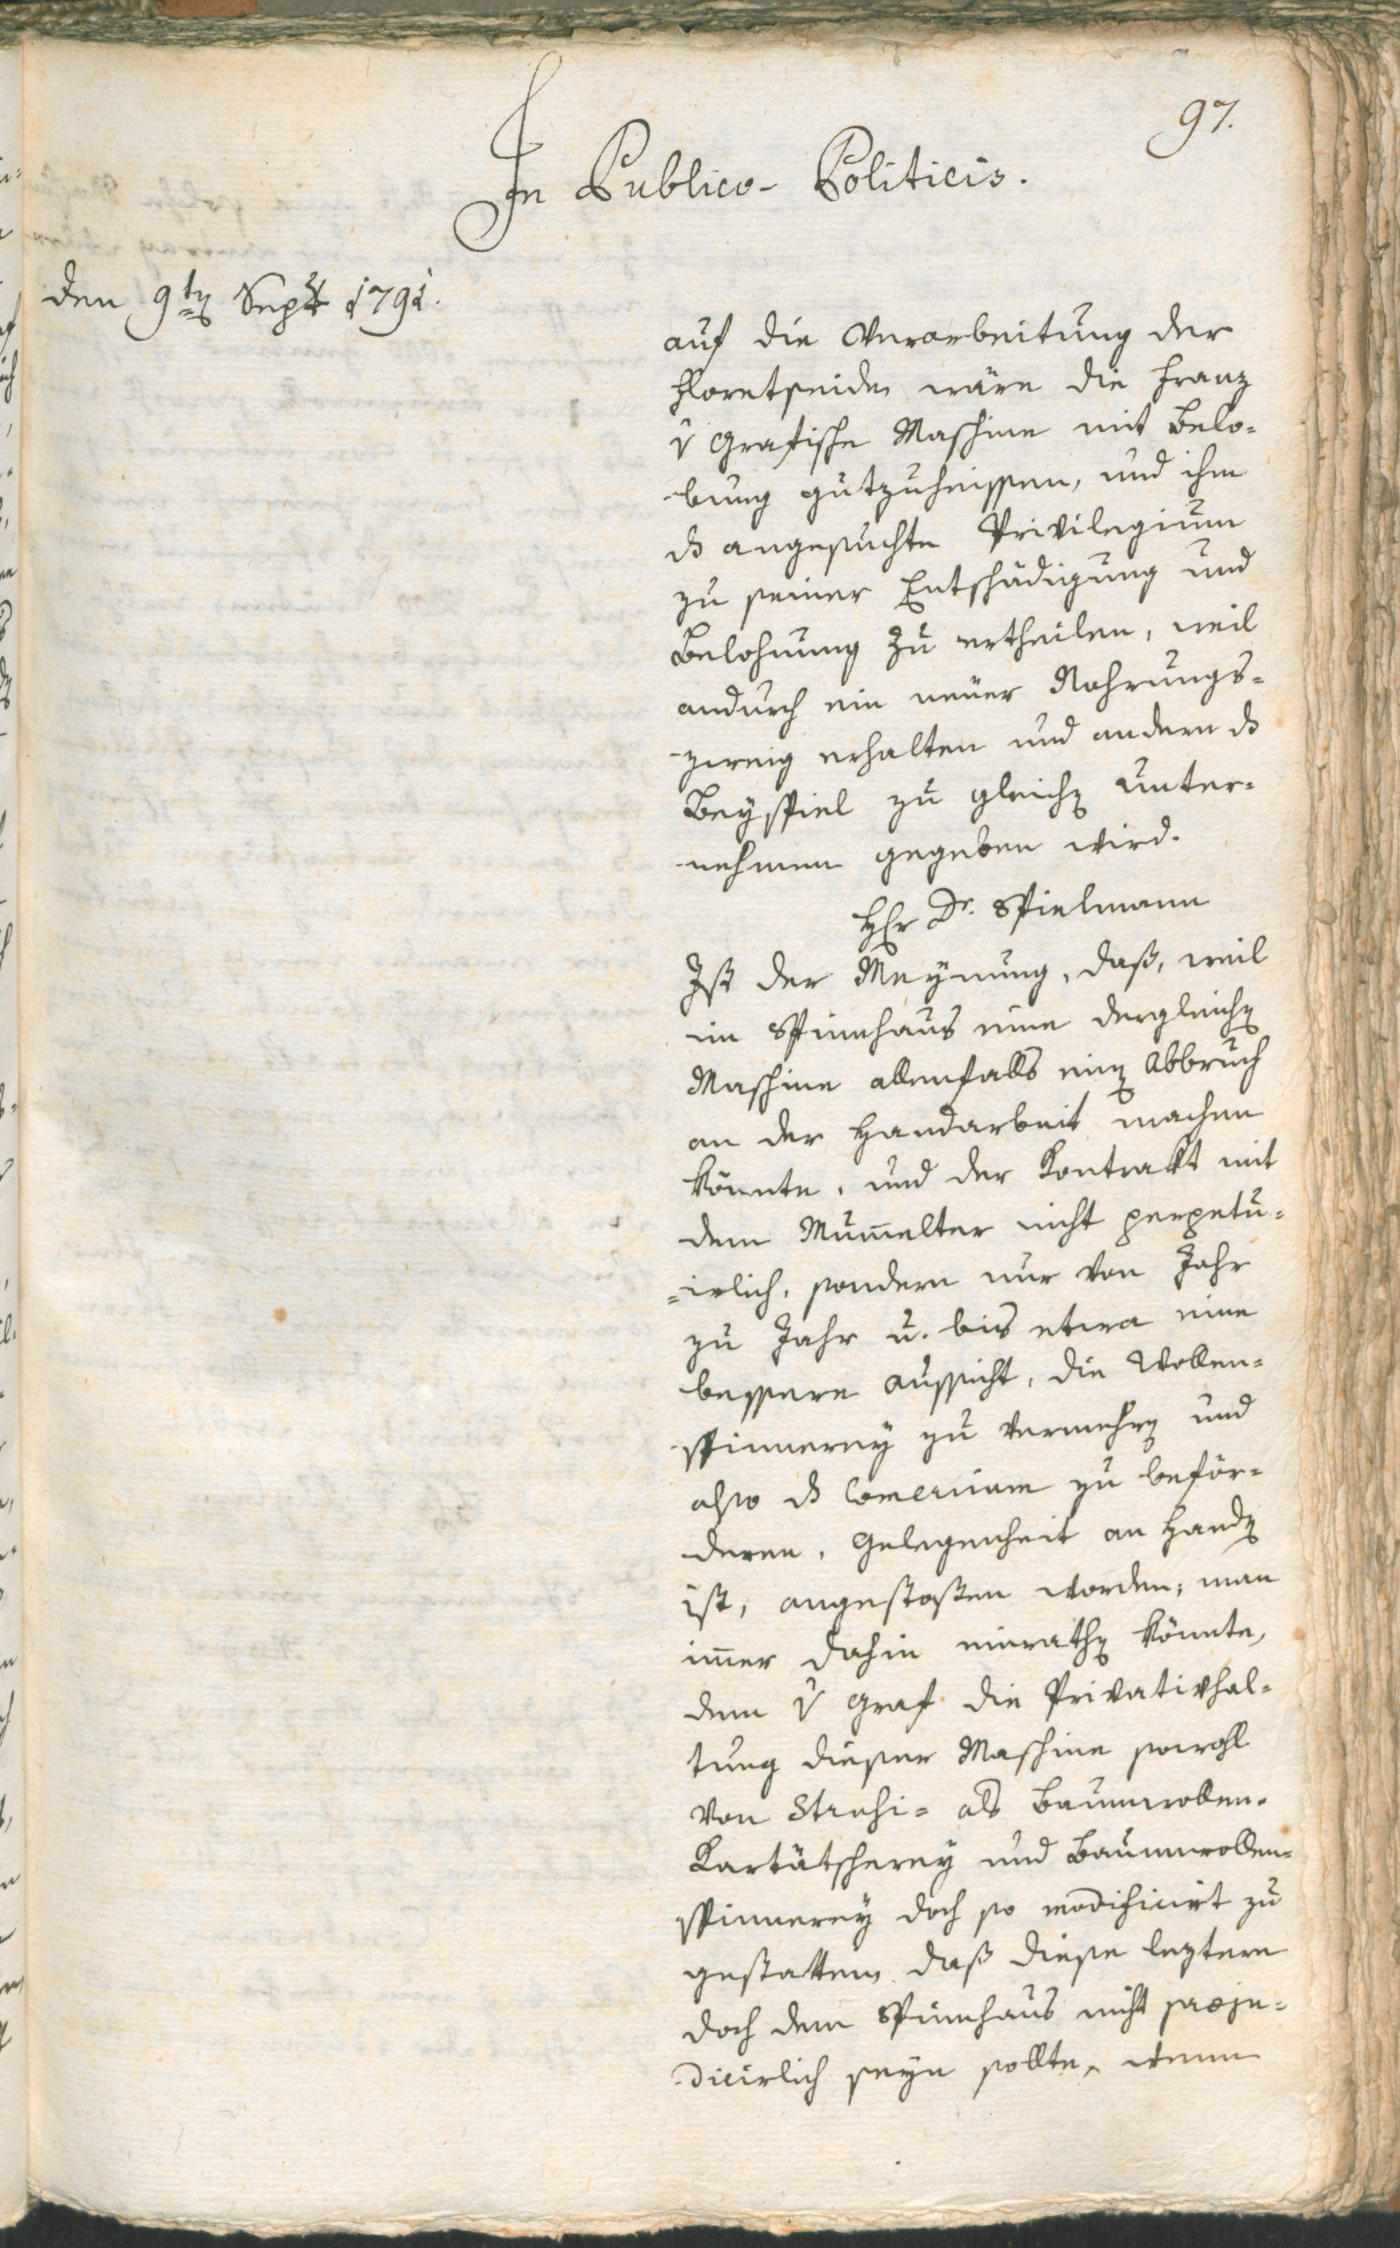 97.
In Publico-Politicis.
den 9ten Sept 1791.
auf die Verarbeitung der
Floretseiden wäre die Franz
v Grafische Maschine mit Belo-
-bung gutzuheissen, und ihm
ds angesuchte Privilegium
zu seiner Entschädigung und
Belohnung zu ertheilen, weil
andurch ein neuer Nahrungs-
-zweig erhalten und andern ds
Beyspiel zu gleichen Unter-
-nehmen gegeben wird.
Hr Dr. Spielmann
Ist der Meynung, daß, weil
im Spinnhaus eine dergleichen
Maschine allenfalls einen Abbruch
an der Handarbeit machen
könnte, und der Kontrakt mit
dem Mumelter nicht perpetu-
-irlich, sondern nur von Jahr
zu Jahr u. bis etwa eine
bessere Aussicht, die Wollen-
-spinnerey zu vermehren und
also ds Comercium zu beför-
-deren, Gelegenheit an Handen
ist, angestoßen worden, man
imer dahin einrathen könnte,
dem v Graf die Privativhal-
tung dieser Maschine sowohl
von Strusi- als Baumwollen-
Kartätscherey und Baumwollen-
spinnerey doch so modificirt zu
gestatten, daß diese leztere
doch dem Spinnhaus nicht praeju-
-dicirlich seyn sollte, wenn